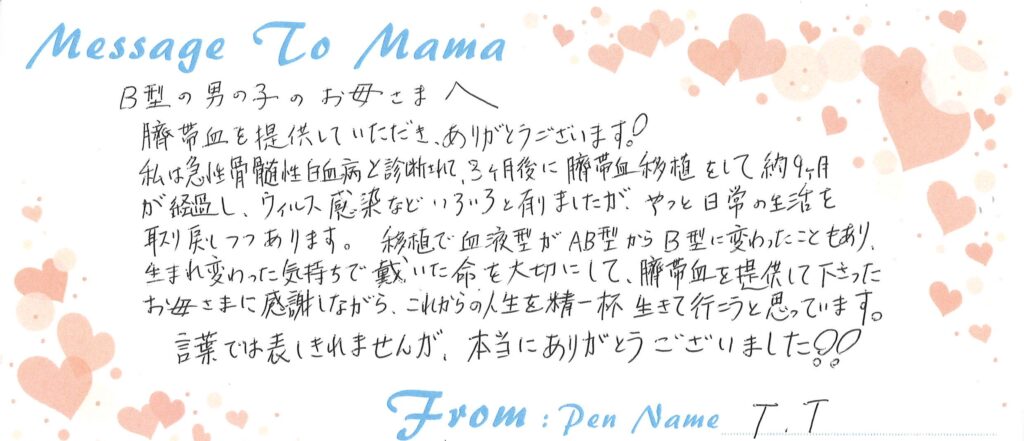 Message To Mama
B型の男の子のお母さまへ
臍帯血を提供していただき、ありがとうございます!
私は急性骨髄性白血病と診断されて、3ヶ月後に臍帯血移植をして約9ヶ月
が経過し、ウィルス感染などいろいろと有りましたが、やっと日常の生活を
取り戻しつつあります。 移植で血液型がAB型からB型に変わったこともあり、
生まれ変わった気持ちで戴いた命を大切にして、臍帯血を提供して下さった
お母さまに感謝しながら、これからの人生を精一杯生きて行こうと思っています。
言葉では表しきれませんが、本当にありがとうございました!!
From : Pen Name T.T